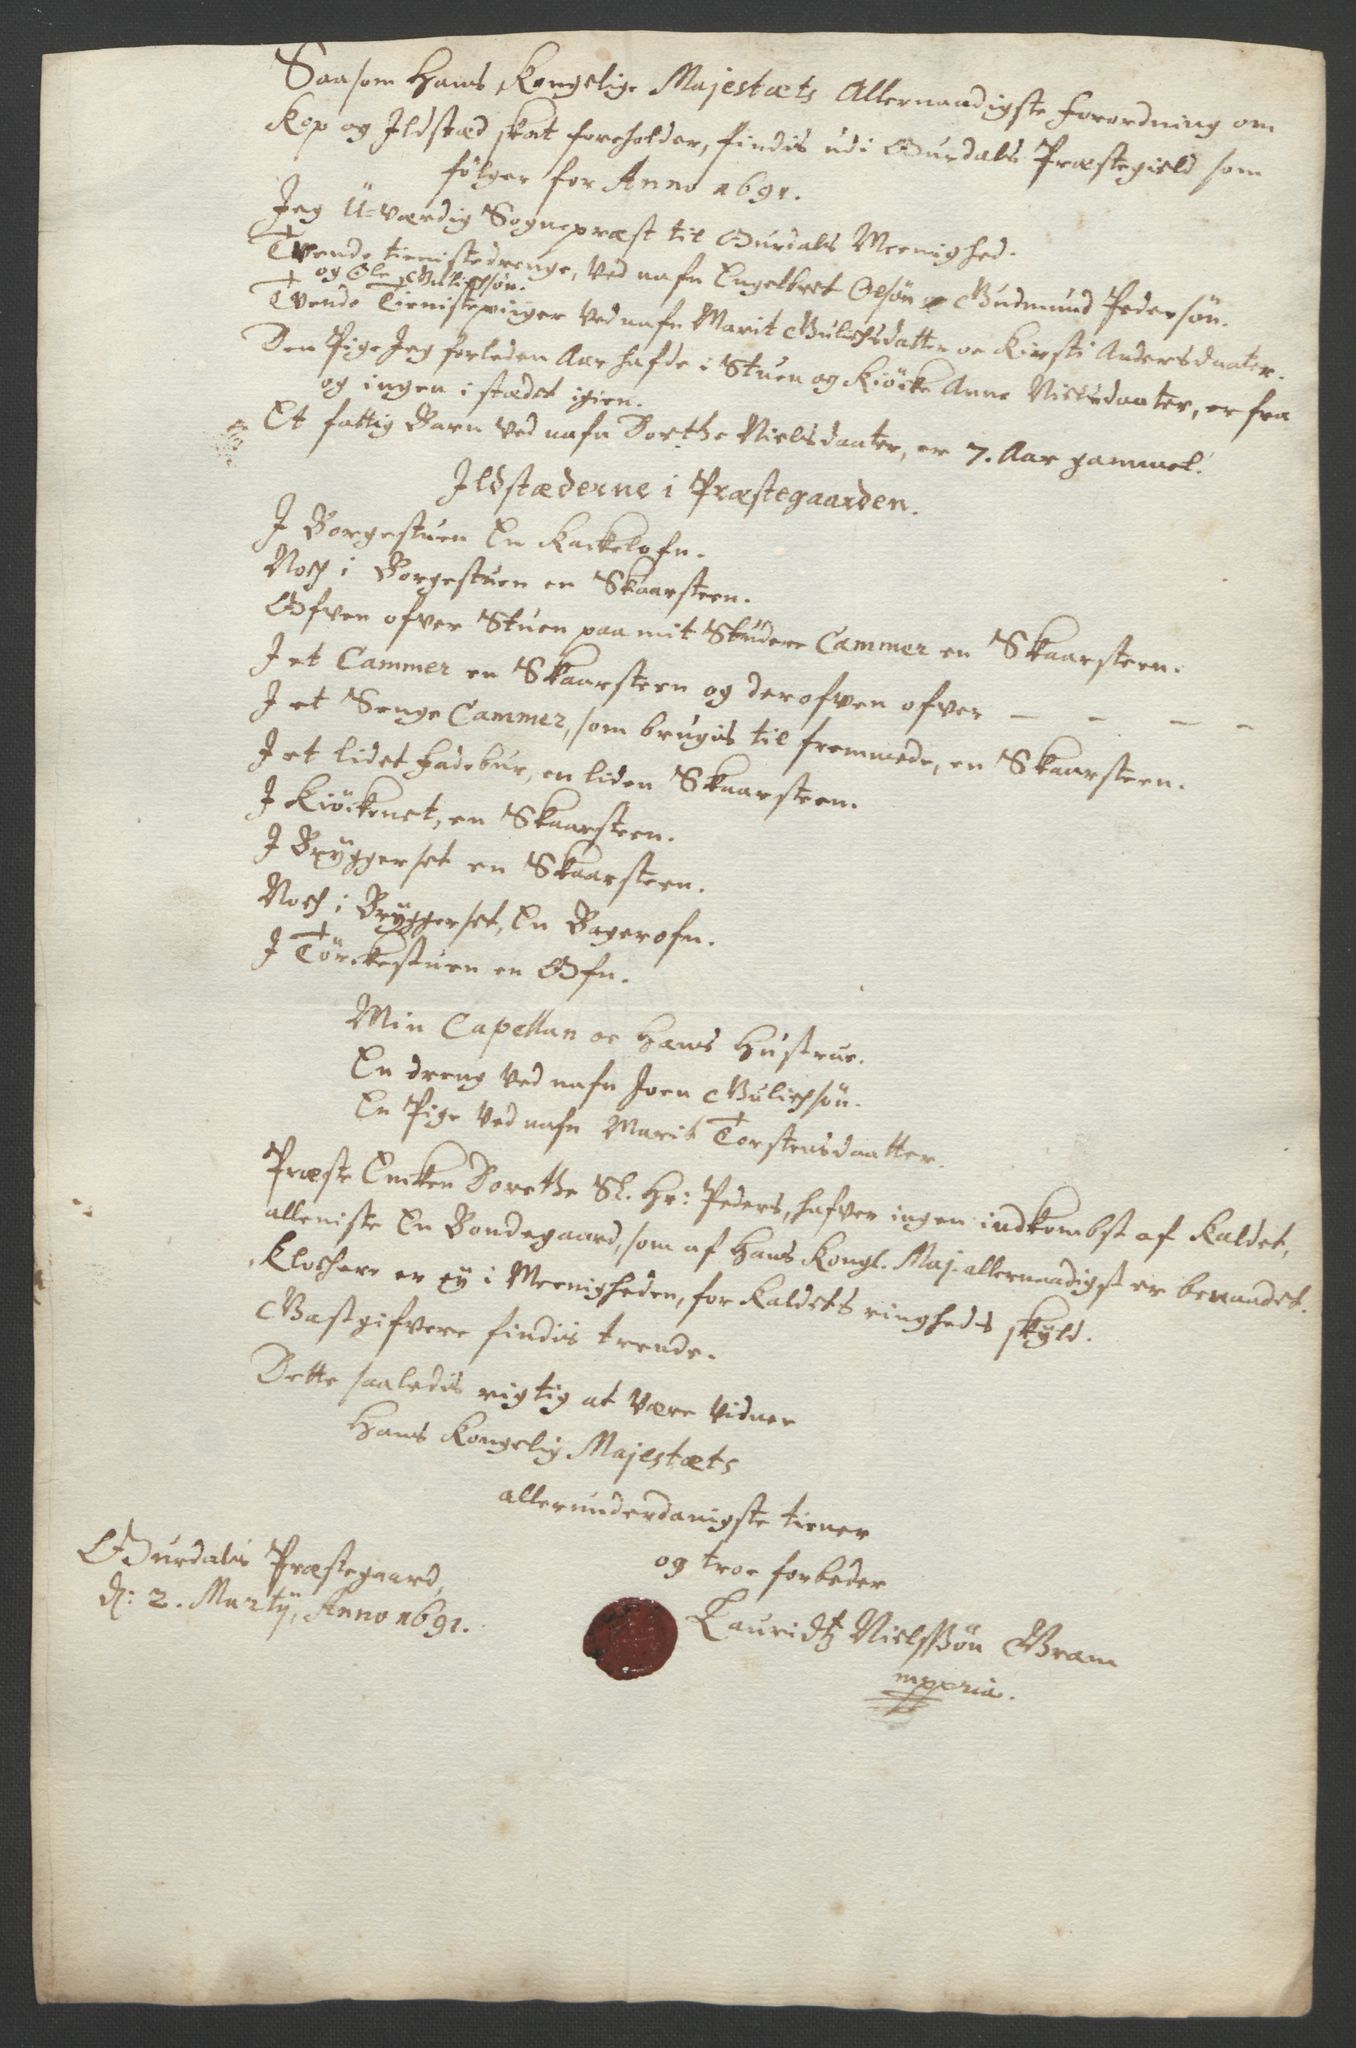 Saasom Hans Kongelige Majestæts Allernaadigste forordning om
Kop og Ildsted skat foreholder, findis udi Ourdals Præstegield som
følger for Anno 1691.
Jeg U-værdig Sognepræst til Ourdals Meenighed.
Tvende tienistedrenge, ved nafn Engelbret Olsøn Gudmund Pedersøn.
og Ole Gulichsøn.
Tvende Tienistepiiger ved nafn Marit Gulichsdatter oc Kirsti Andersdaater.
Den Pige Jeg forleden Aar hafde i Stuen og Kiöcke Anne Nielsdaater, er fra
og ingen i stædet igien.
Et fattig Barn ved nafn Dorthe Nielsdaater, er 7. Aar gammel.
Ildstæderne i Præstegaarden.
J Borgestuen En Kackelofn.
Noch i Borgestuen en Skaarsteen.
Ofven ofver Stuen paa mit Studere Cammer en Skaarsteen.
J et Cammer en Skaarsteen og derofven ofver — - - -
J et Senge Cammer, som brugis til fremmede, en Skaarsteen.
J et lidet Fadebur, en liden Skaarsteen.
J Kiöckenet, en Skaarsteen.
J Bryggerset en Skaarsteen.
Noch i Bryggerset, En Bagerofn.
J Törckestuen en Ofn.
Min Capellan oc Hans Hustrue.
En dreng ved nafn Joen Gulichsøn.
En Pige ved nafn Marit Torstensdaatter.
Præste Encken Dorethe Sl. Hr: Peders, hafver ingen indkombst af Kaldet,
alleniste En Bondegaard, som af Hans Kongl. Maj. allernaadigst er benaadet.
Klochere er ey i Meenigheden, for Kaldets ringheds skyld.
Gastgifvere findis trende.
Dette saaledis rigtig at være vidner
Hans Kongelig Majestæts
allerunderdanigste tiener
og troe forbeder
Ourdals Præstegaard,
d: 2. Martij, Anno 1691.
Lauridtz Nielssøn Gram
mppria.